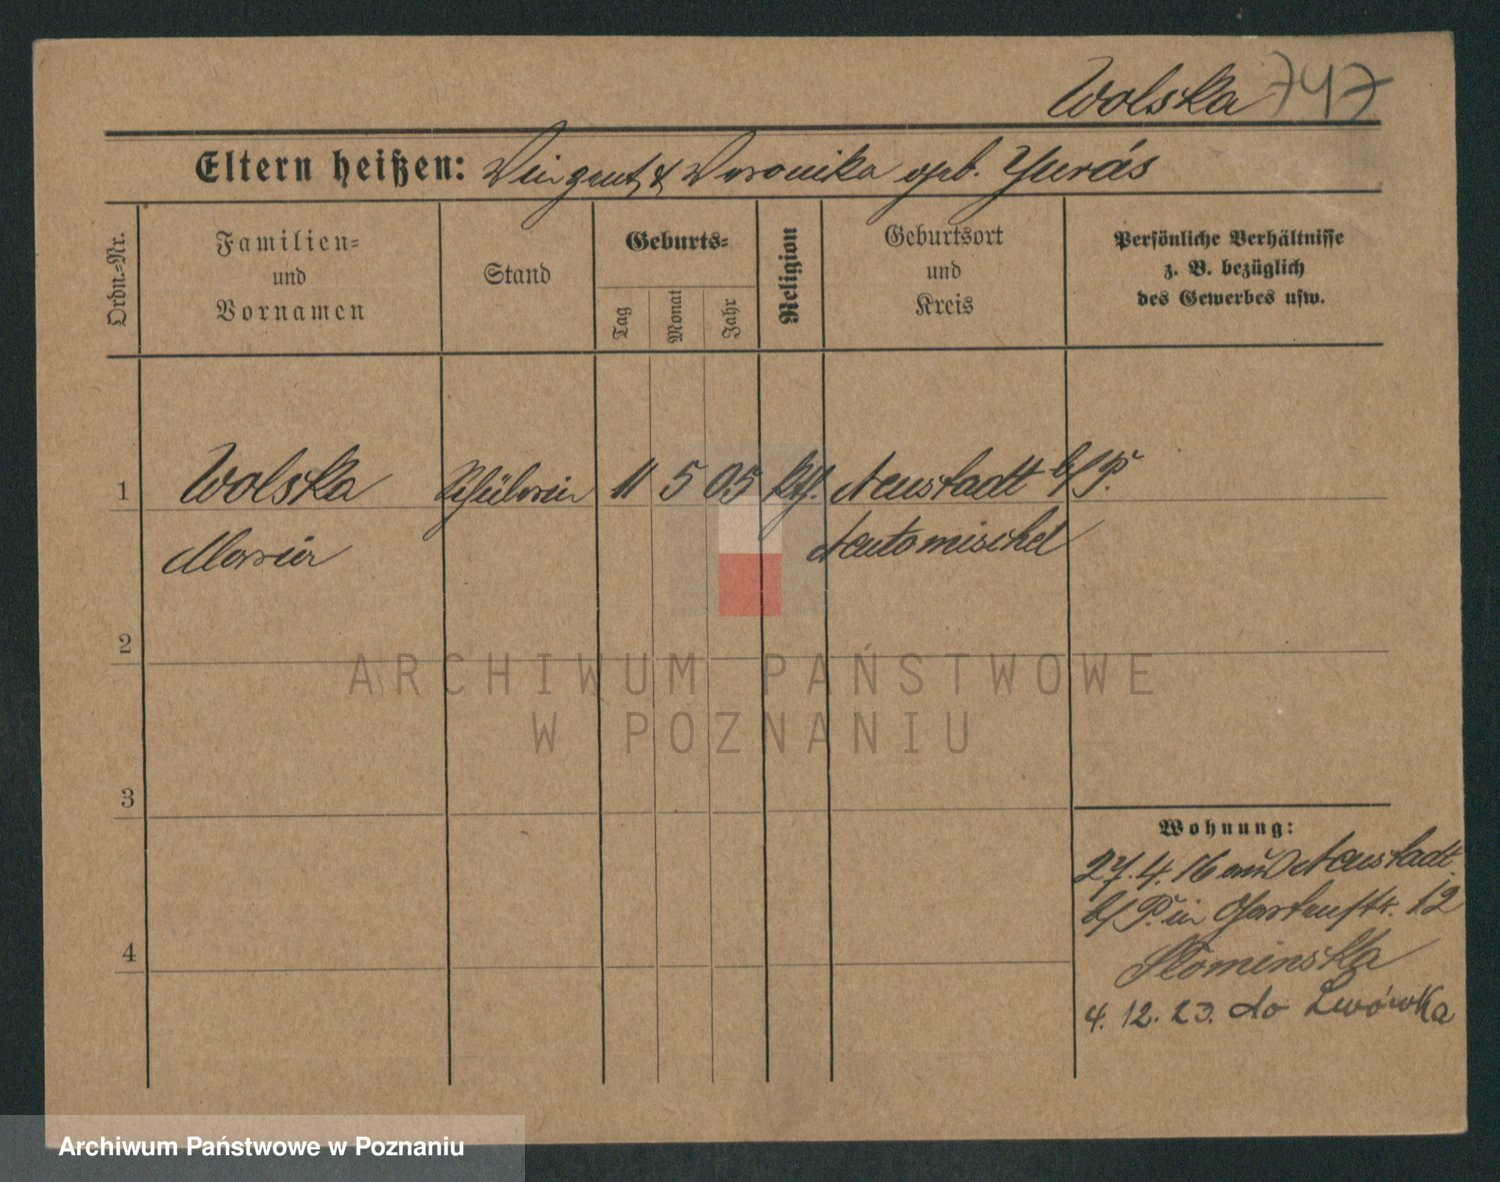 Wolska 747
Eltern heißen: Vinzent & Veronika geb. Yurás
Ordn.=Nr.
Familien=
und
Vornamen
Stand
Geburts=
Tag
Monat
Jahr
Religion
Geburtsort
und
Kreis
Persönliche Verhältnisse
z. B. bezüglich
des Gewerbes usw.
1 Wolska Schülerin 11 5 05 kth. Neustadt b/P.
Maria Neutomischel
2
3
4
Wohnung:
27.4.16 aus Neustadt
b/P. in Gartenstr. 12
Slominska
4.12.23. do Lwówka
ARCHIWUM PAŃSTWOWE
W POZNANIU
Archiwum Państwowe w Poznaniu